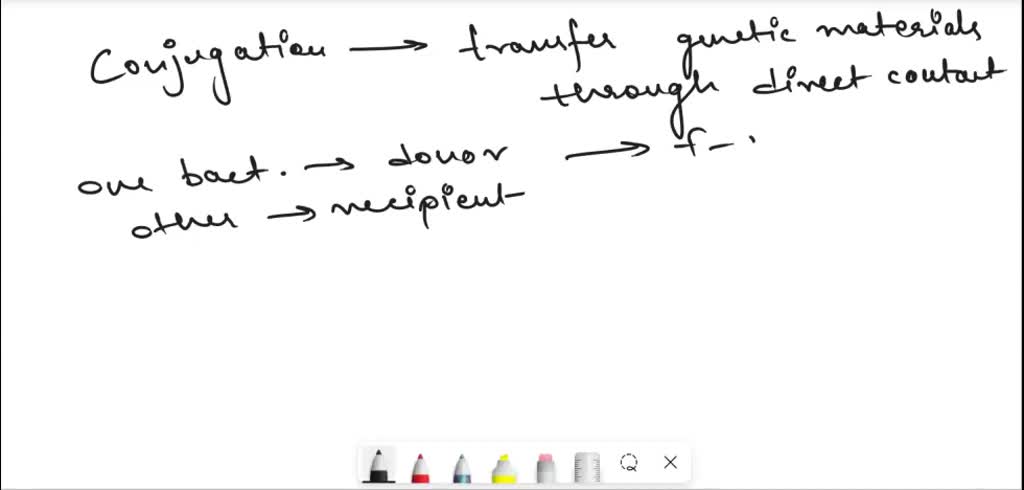 Conjugation → transfer genetic materials
through direct contact
one bact. → donor → f-.
other → recipient